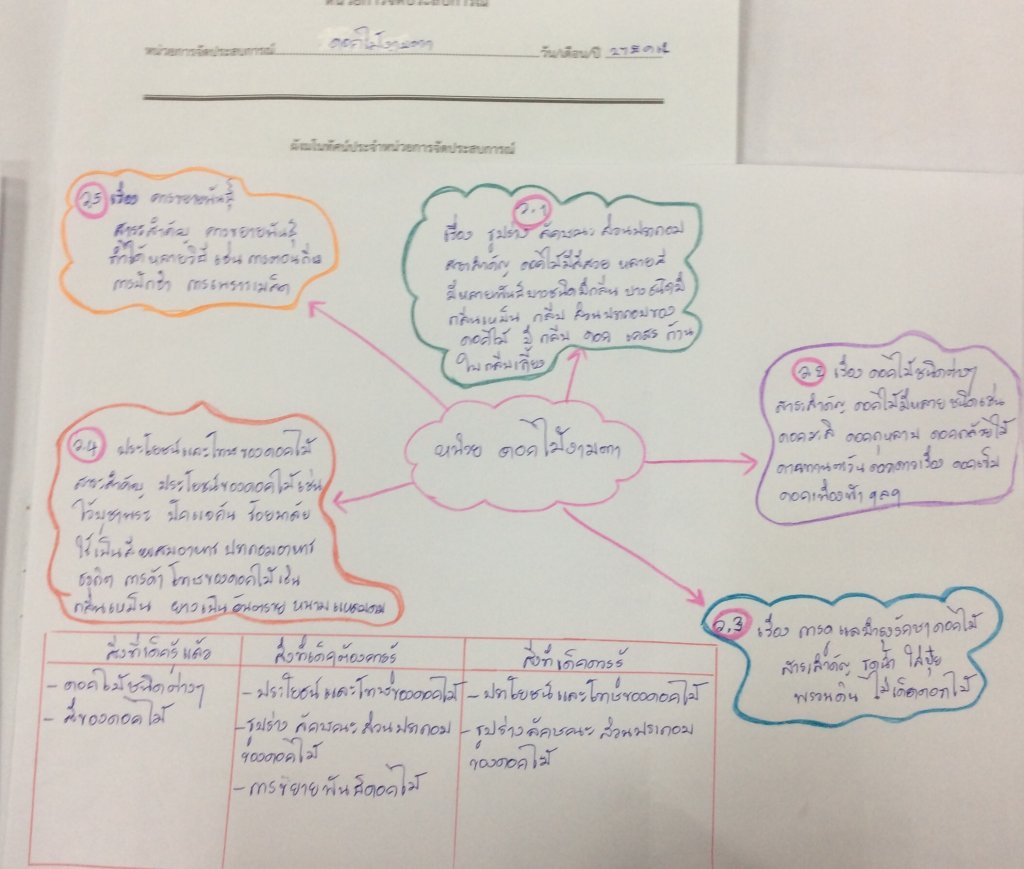 หน่วยการจัดประสบการณ์
หน่วยการจัดประสบการณ์ ดอกไม้งามตา วัน/เดือน/ปี
ผังมโนทัศน์ประจำหน่วยการจัดประสบการณ์
ว.5 เรื่อง การขยายพันธุ์
สาระสำคัญ การขยายพันธุ์
ทำได้หลายวิธี เช่น การตอนกิ่ง
การปักชำ การเพาะเมล็ด
ว.1
เรื่อง รูปร่าง ลักษณะ ส่วนประกอบ
สาระสำคัญ ดอกไม้มีสีสวย หลายสี
มีหลายพันธ์บางชนิดมีกลิ่น บางชนิดมี
กลิ่นเหม็น กลีบ ส่วนประกอบของ
ดอกไม้ มี กลีบ ดอก เกสร ก้าน
ใบ กลีบเลี้ยง
ว.2 เรื่อง ดอกไม้ชนิดต่างๆ
สาระสำคัญ ดอกไม้มีหลายชนิดเช่น
ดอกมะลิ ดอกกุหลาบ ดอกกล้วยไม้
ดาทานตะวัน ดอกดาวเรือง ดอกเข็ม
ดอกเฟื่องฟ้า ฯลฯ
หน่วย ดอกไม้งามตา
ว.4 ประโยชน์และโทษของดอกไม้
สาระสำคัญ ประโยชน์ของดอกไม้เช่น
ไว้บูชาพระ ปักแจกัน ร้อยมาลัย
ใช้เป็นสีผสมอาหาร ประกอบอาหาร
ธุรกิจ การค้า โทษของดอกไม้ เช่น
กลิ่นเหม็น ยางเป็นอันตราย หนามแหลมคม
ว.3 เรื่อง การดูแลบำรุงรักษาดอกไม้
สาระสำคัญ รดน้ำ ใส่ปุ๋ย
พรวนดิน ไม่เด็ดดอกไม้
สิ่งที่เด็กรู้แล้ว สิ่งที่เด็กต้องการรู้ สิ่งที่เด็กควรรู้
- ดอกไม้ชนิดต่างๆ - ประโยชน์และโทษของดอกไม้ - ประโยชน์และโทษของดอกไม้
- สีของดอกไม้ - รูปร่าง ลักษณะ ส่วนประกอบ - รูปร่าง ลักษณะ ส่วนประกอบ
ของดอกไม้ ของดอกไม้
- การขยายพันธ์ดอกไม้